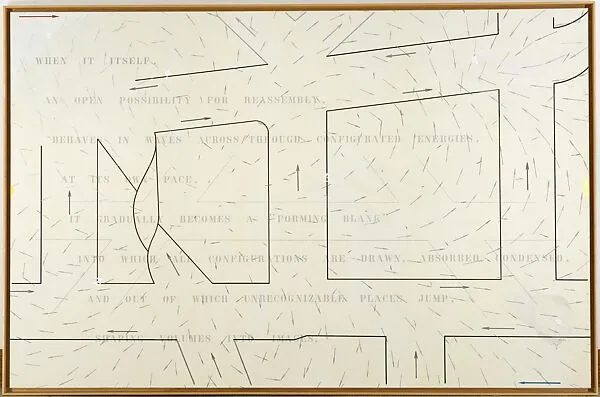 WHEN IT ITSELF,
AN OPEN POSSIBILITY FOR REASSEMBLY,
BEHAVES IN WAVES ACROSS/THROUGH CONFIGURATED ENERGIES,
AT ITS OWN PACE,
IT GRADUALLY BECOMES A "FORMING BLANK"
INTO WHICH ALL CONFIGURATIONS ARE DRAWN, ABSORBED, CONDENSED,
AND OUT OF WHICH UNRECOGNIZABLE PLACES JUMP,
SHAPING VOLUMES INTO IMAGES.